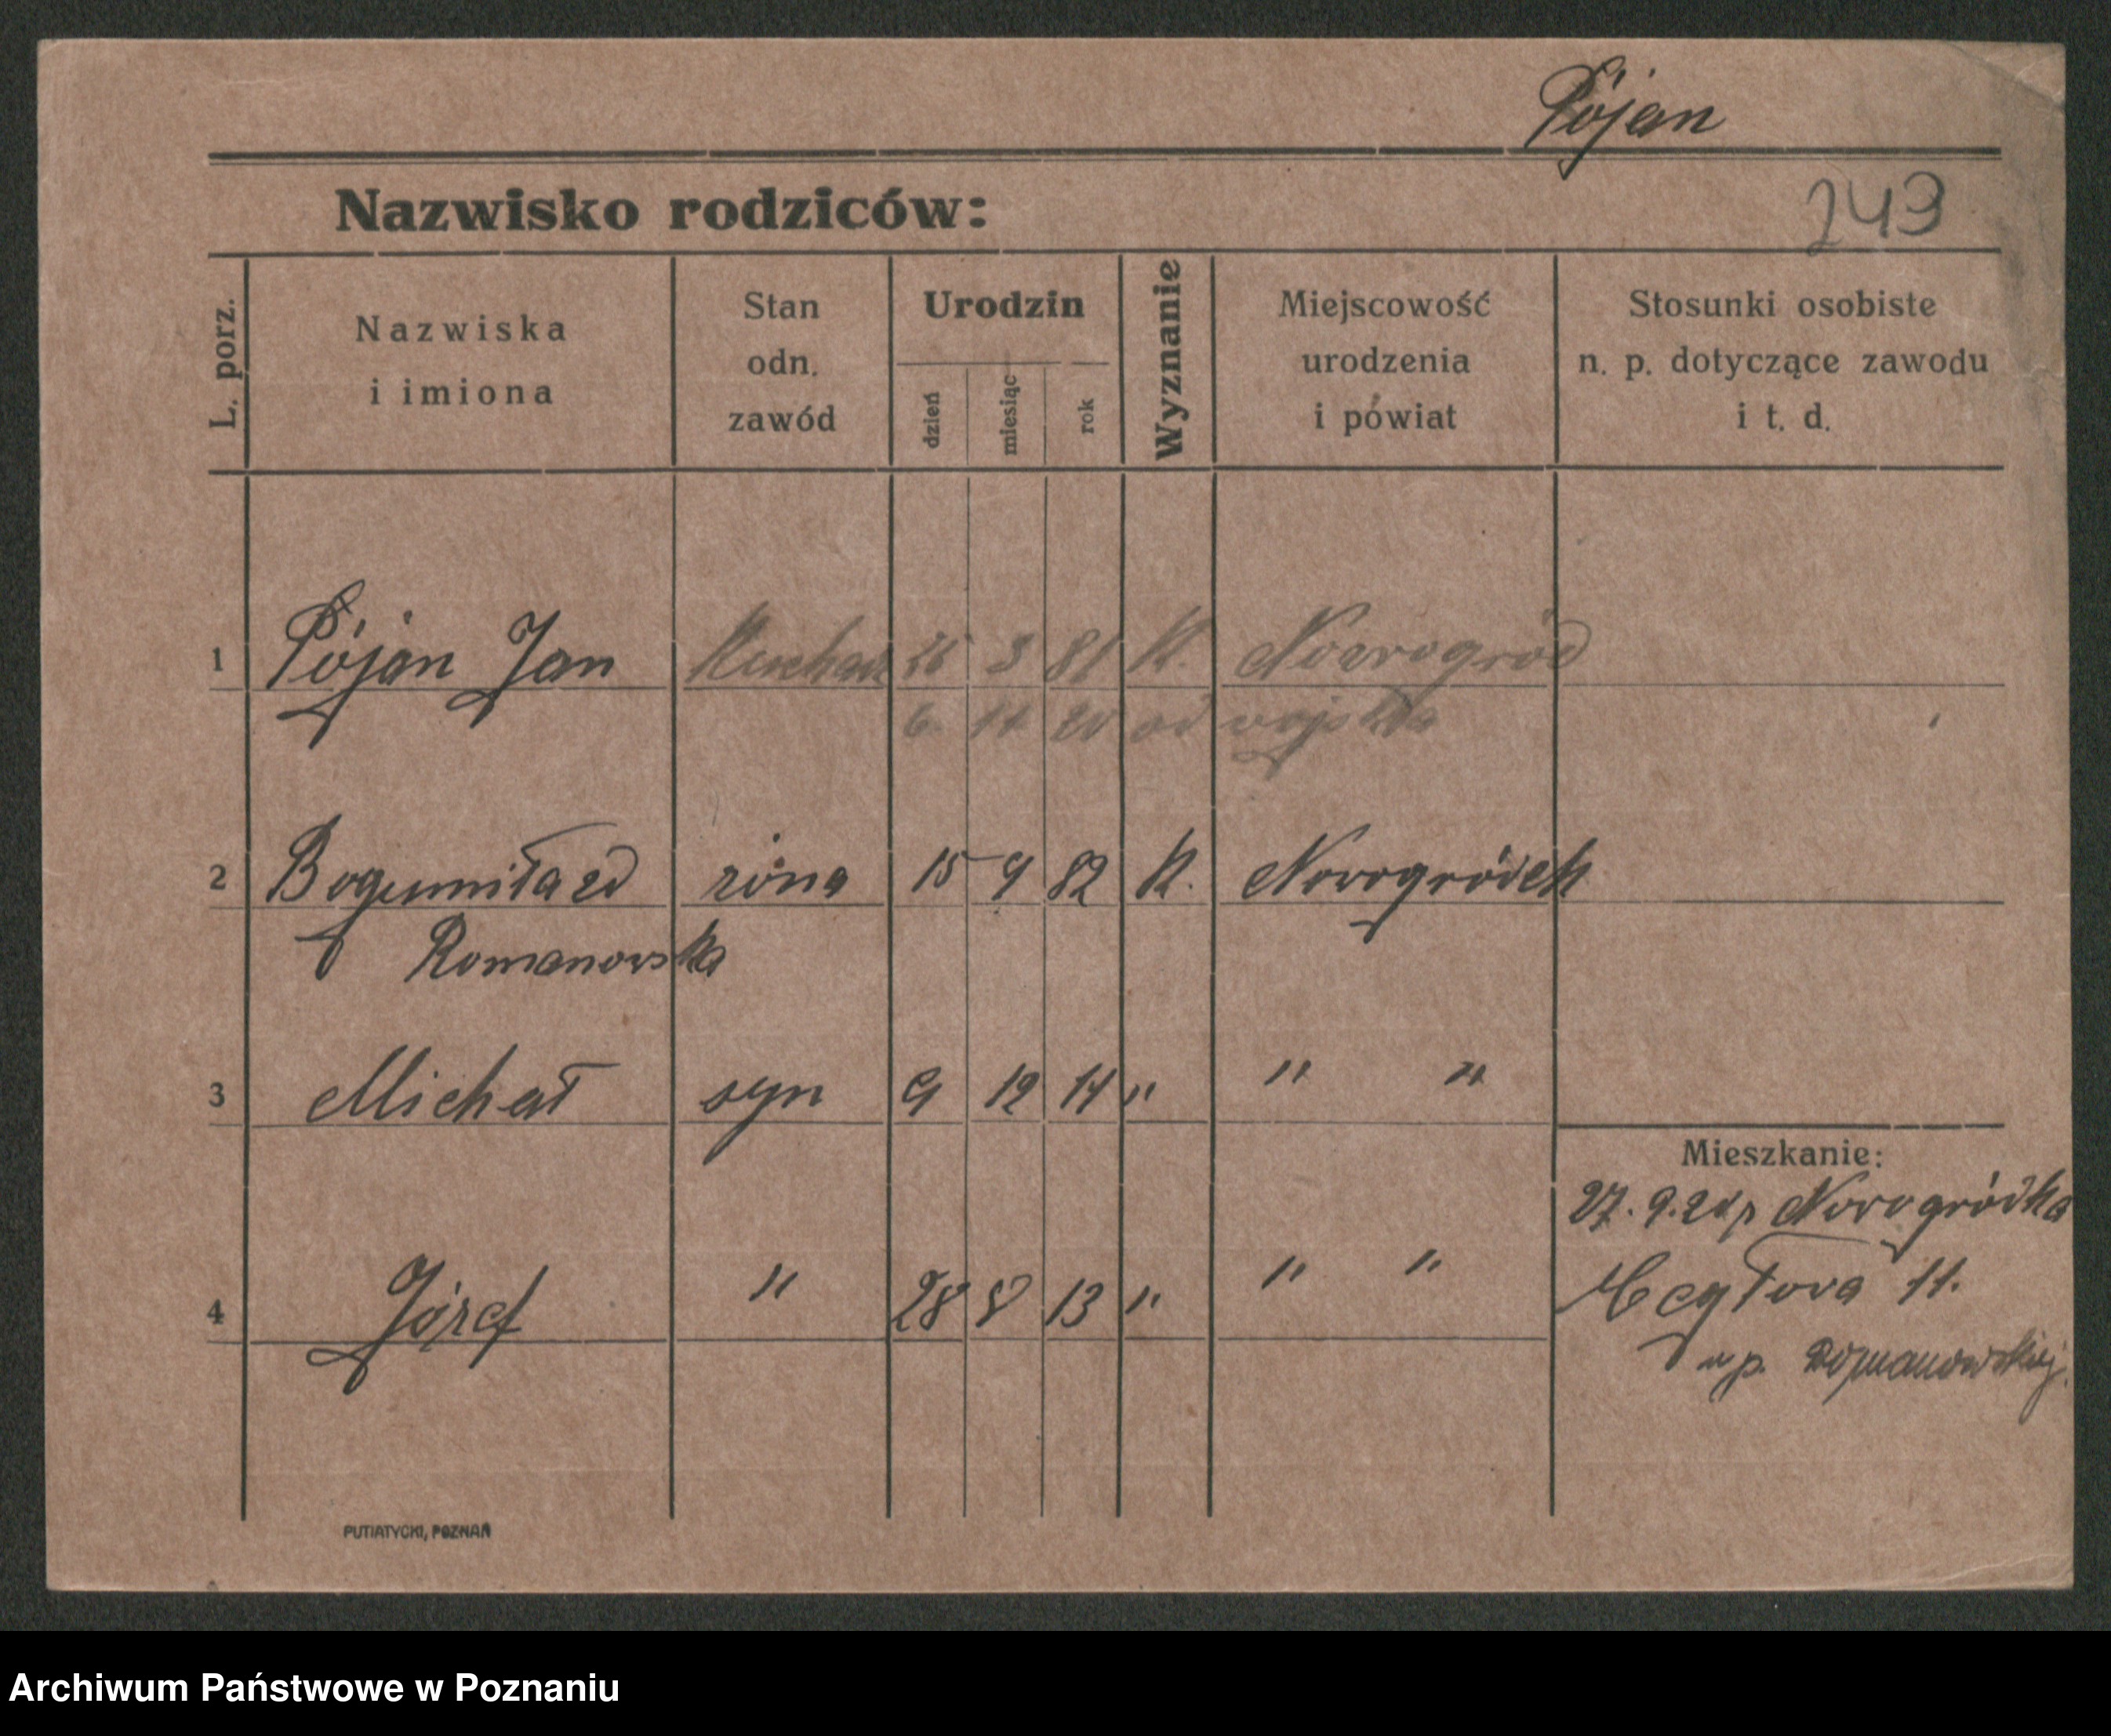 Pójan
Nazwisko rodziców:
243
L. porz.
Nazwiska
i imiona
Stan
odn.
zawód
Urodzin
dzień
miesiąc
rok
Wyznanie
Miejscowość
urodzenia
i powiat
Stosunki osobiste
n. p. dotyczące zawodu
i t. d.
1 Pójan Jan 26 3 81 K. Nowogród
6. 11 20 od wojska
2 Bogumiła zd żona 15 9 82 K. Novogródek
Romanowska
3 Michał syn 9 12 14 " " "
Mieszkanie:
27. 9. Novogródka
4 Józef " 28 8 13 " " "
11.
u p. Romanowskiej.
PUTIATYCKI, POZNAŃ
Archiwum Państwowe w Poznaniu